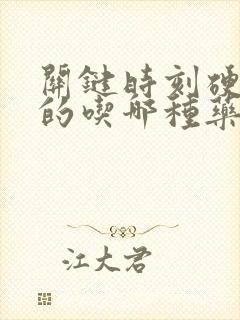 關鍵時刻硬
的喫哪種藥
江大君